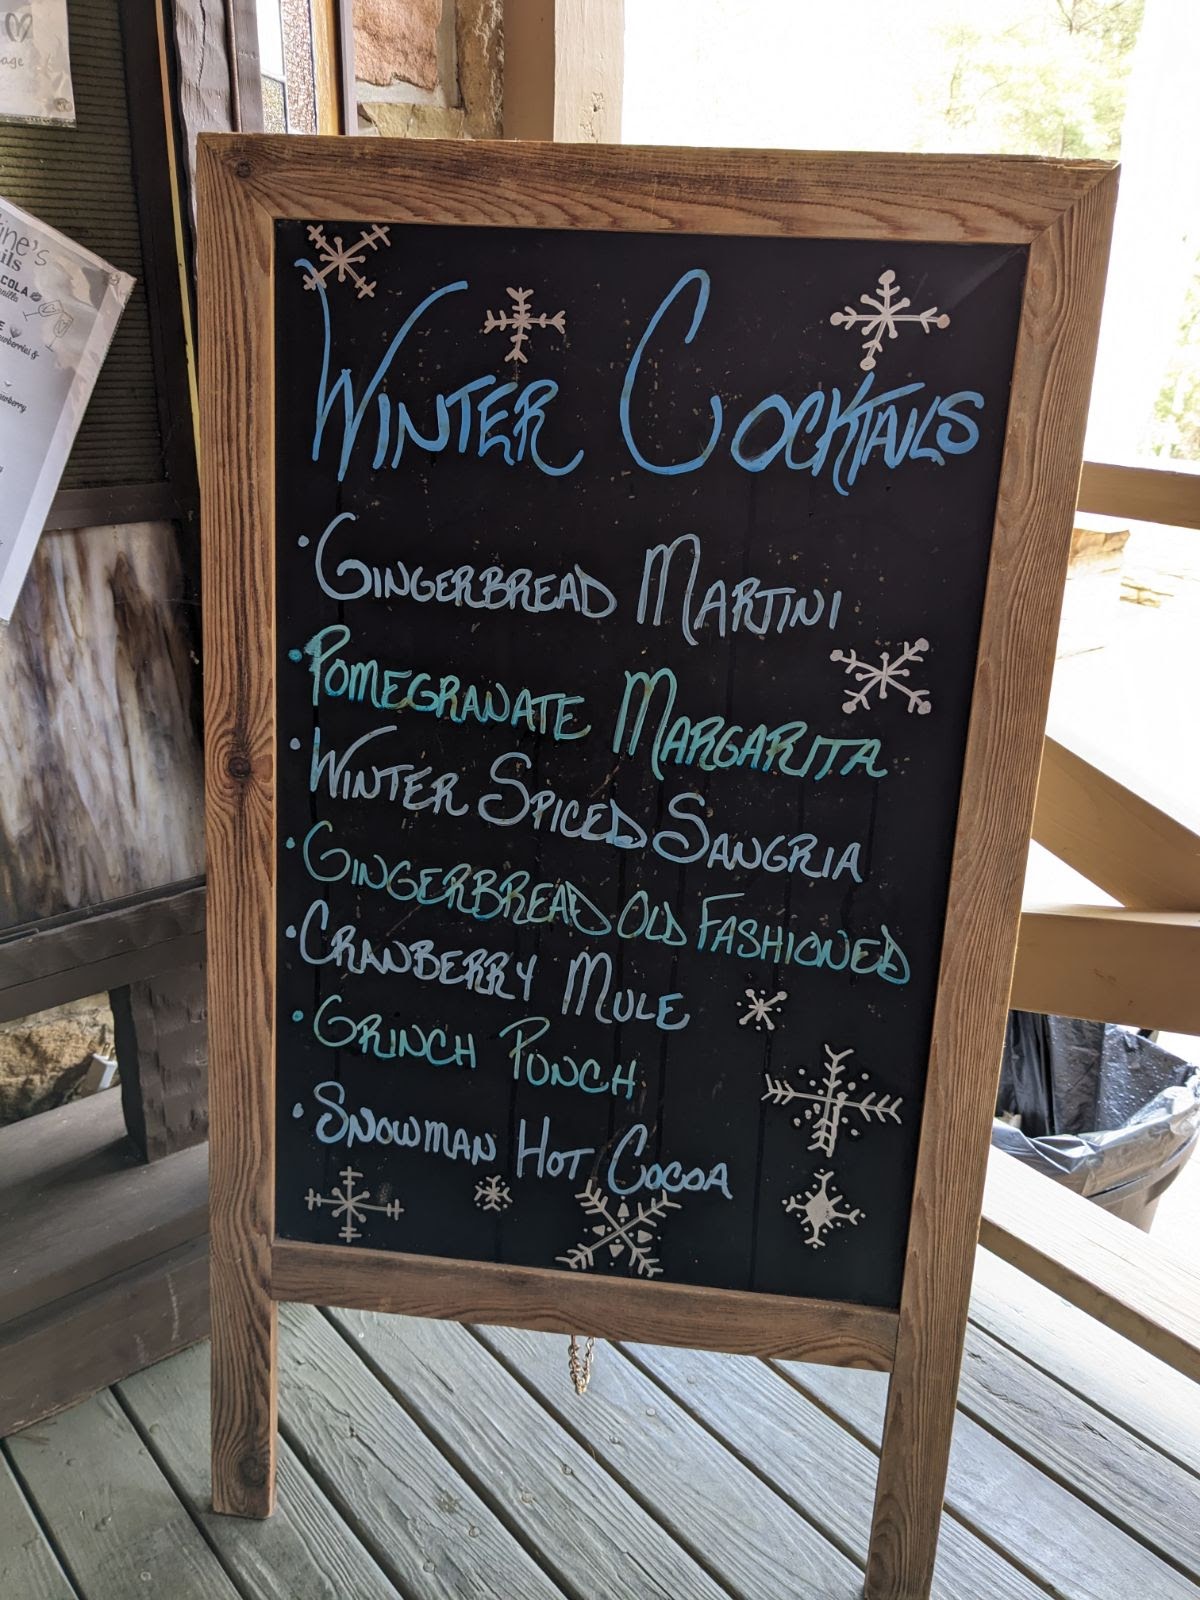 Winter Cocktails
• Gingerbread Martini
• Pomegranate Margarita
• Winter Spiced Sangria
• Gingerbread Old Fashioned
• Cranberry Mule
• Grinch Punch
• Snowman Hot Cocoa
COLA